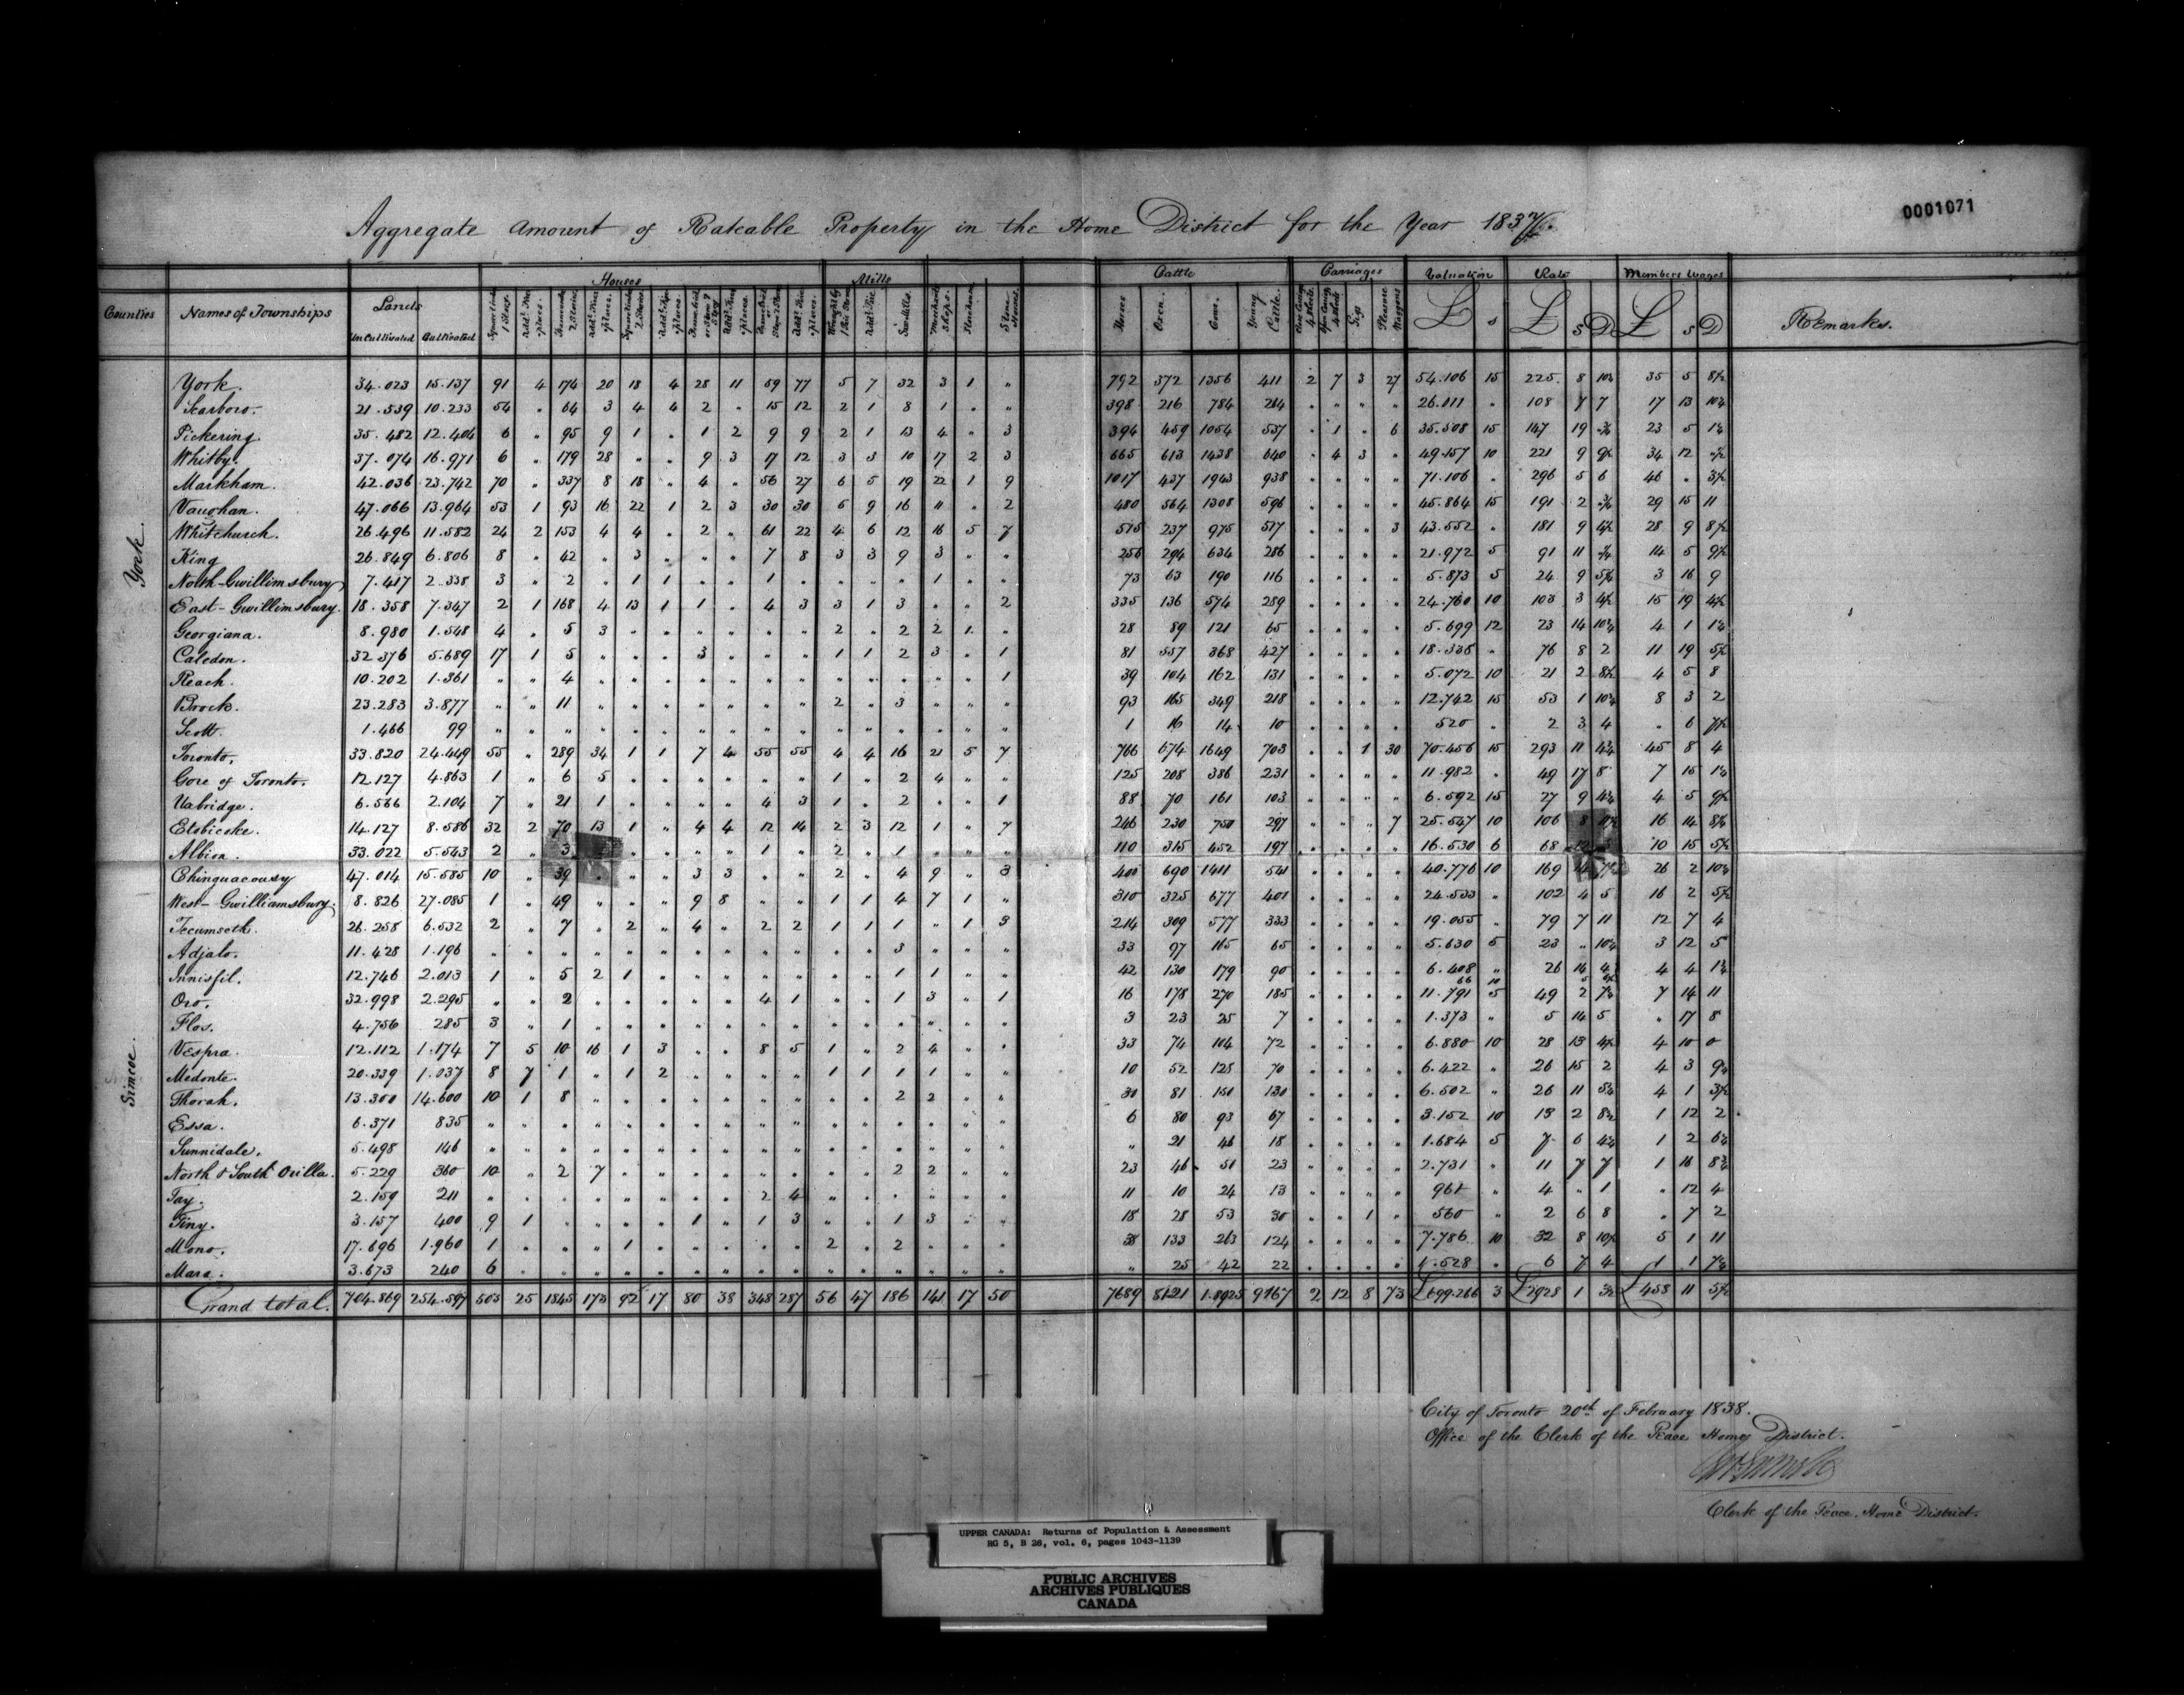 0001071
Aggregate Amount of Rateable Property in the Home District for the Year 1837
Counties Names of Townships Lands Houses Mills Cattle Carriages Valuation Rate Members Wages Remarks.
UnCultivated Cultivated Horses Oxen. Cows. Young Cattle. Gigs Pleasure Waggons £ s £ S D £ s D
York. 34.023 15.137 91 4 174 20 18 4 28 11 59 77 5 7 32 3 1 " 792 372 1356 411 2 7 3 27 54.106 15 225 8 10½ 35 5 8½
Scarboro. 21.539 10.233 54 " 64 3 4 4 2 " 15 12 2 1 8 1 " " 398 216 784 264 " " " " 26.011 " 108 7 7 17 13 10¼
Pickering. 35.482 12.404 6 " 95 9 1 " 1 2 9 9 2 1 13 4 " 3 394 459 1054 537 " 1 " 6 35.508 15 147 19 23 5
Whitby. 37.074 16.971 6 " 179 28 " " 9 3 17 12 3 3 10 17 2 3 665 613 1438 640 " 4 3 " 49.157 10 221 9 34 12
Markham. 42.036 23.742 70 " 337 8 18 " 4 " 56 27 6 5 19 22 1 9 1017 437 1943 938 " " " " 71.106 " 296 5 6 46 " 3½
Vaughan. 47.066 13.964 53 1 93 16 22 1 2 3 30 30 5 9 16 11 " 2 480 564 1308 596 " " " " 45.864 15 191 2 29 15 11
Whitchurch. 26.496 11.582 24 2 153 4 4 " 2 " 61 22 4 6 12 16 5 7 515 237 975 517 " " " 3 43.552 " 181 9 4½ 28 9 8½
King 26.849 6.806 8 " 42 " 3 " " " 7 8 3 3 9 3 " " 256 294 634 286 " " " " 21.972 5 91 11 14 5 9½
North-Gwillimsbury 7.417 2.338 3 " 2 " 1 1 " " 1 " " " " 1 " " 73 63 190 116 " " " " 5.873 5 24 9 5½ 3 16 9
East-Gwillimsbury. 18.358 7.347 2 1 168 4 13 1 1 " 4 3 3 1 3 " " 2 335 136 574 289 " " " " 24.760 10 103 3 4½ 15 19 4½
Georgiana. 8.980 1.548 4 " 5 3 " " " " " " 2 " 2 2 1 " 28 89 121 65 " " " " 5.699 12 23 14 10¾ 4 1 1¼
Caledon. 32.376 5.689 17 1 5 " " " 3 " " " 1 1 2 3 " 1 81 557 368 427 " " " " 18.336 " 76 8 2 11 19 5½
Reach. 10.202 1.361 " " 4 " " " " " " " " " " " " 1 39 104 162 131 " " " " 5.072 10 21 2 8½ 4 5 8
Brock. 23.283 3.877 " " 11 " " " " " " " 2 " 3 " " " 93 165 349 218 " " " " 12.742 15 53 1 10¾ 8 3 2
Scott. 1.466 99 " " " " " " " " " " " " " " " " 1 16 14 10 " " " " 520 " 2 3 4 " 6 7½
Toronto. 33.820 24.449 55 " 289 34 1 1 7 4 55 55 4 4 16 21 5 7 766 674 1649 703 " " 1 30 70.456 15 293 11 4¾ 45 8 4
Gore of Toronto. 12.127 4.863 1 " 6 5 " " " " " " 1 " 2 4 " " 125 208 386 231 " " " " 11.982 " 49 17 8 7 15 1¼
Uxbridge. 6.566 2.104 7 " 21 1 " " " " 4 3 1 " 2 " " 1 88 70 161 103 " " " " 6.592 15 27 9 4¾ 4 5 9½
Etobicoke. 14.127 8.586 32 2 70 13 1 " 4 4 12 14 2 3 12 1 " 7 246 230 750 297 " " " 7 25.547 10 106 8 16 14 8½
Albion. 33.022 5.543 2 " 3 " " " " 1 " 2 " 1 " " " 110 315 452 197 " " " " 16.530 6 68 10 15 5½
Chinguacousy 47.014 15.585 10 " 39 " " " 3 3 " " 2 " 4 9 " 3 400 690 1411 541 " " " " 40.776 10 169 26 2 10¼
West-Gwilliamsbury. 8.826 27.085 1 " 49 " " " 9 8 " " 1 1 4 7 1 " 310 325 677 401 " " " " 24.533 " 102 4 5 16 2 5½
Tecumseth. 26.258 6.532 2 " 7 " 2 " 4 " 2 2 1 1 1 " 1 3 214 309 577 333 " " " " 19.055 " 79 7 11 12 7 4
Adjala. 11.428 1.196 " " " " " " " " " " " " 3 " " " 33 97 165 65 " " " " 5.630 5 23 " 10¼ 3 12 5
Innisfil. 12.746 2.013 1 " 5 2 1 " " " " " " " 1 1 " " 42 130 179 90 " " " " 6.408 " 26 14 4 4 1¼
66 10
Oro. 32.998 2.295 " " 2 " " " " " 4 1 " " 1 3 " 1 16 178 270 185 " " " " 11.791 5 49 2 7½ 7 14 11
Flos. 4.756 285 3 " 1 " " " " " " " " " " " " " 3 23 25 7 " " " " 1.373 " 5 14 5 " 17 8
Vespra. 12.112 1.174 7 5 10 16 1 3 " " 8 5 1 " 2 4 " " 33 74 104 72 " " " " 6.880 10 28 13 4½ 4 10 0
Medonte. 20.339 1.037 8 7 1 " 1 2 " " " " 1 1 1 1 " " 10 52 125 70 " " " " 6.422 " 26 15 2 4 3 9¼
Thorah. 13.300 14.600 10 1 8 " " " " " " " " " 2 2 " " 30 81 150 130 " " " " 6.502 " 26 11 5¼ 4 1 3½
Essa. 6.371 835 " " " " " " " " " " " " " " " " 6 80 93 67 " " " " 3.152 10 13 2 8½ 1 12 2
Sunnidale. 5.498 146 " " " " " " " " " " " " " " " " " 21 46 18 " " " " 1.684 5 7 6 4¼ 1 2 6¼
North & South Orilla. 5.229 360 10 " 2 7 " " " " " " " " 2 2 " " 23 46 51 23 " " " " 2.731 " 11 7 7 1 16 8¾
Tay. 2.159 211 " " " " " " " " 2 4 " " " " " " 11 10 24 13 " " " " 961 " 4 " 1 " 12 4
Tiny. 3.157 400 9 1 " " " " 1 " 1 3 " " 1 3 " " 18 28 53 30 " " 1 " 560 " 2 6 8 " 7 2
Mono. 17.696 1.960 1 " " " 1 " " " " " 2 " 2 " " " 38 133 263 124 " " " " 7.786 10 32 8 10½ 5 1 11
Mara. 3.673 240 6 " " " " " " " " " " " " " " " " 25 42 22 " " " " 1.528 " 6 7 4 1 1 7¼
Grand total. 704.869 254.597 503 25 1845 173 92 17 80 38 348 287 56 47 186 141 17 50 7689 8121 1.8925 9767 2 12 8 73 £699.266 3 £2928 1 3½ £458 11 5½
York
Simcoe.
City of Toronto 20th of February 1838.
Office of the Clerk of the Peace Home District.
Clerk of the Peace. Home District.
UPPER CANADA: Returns of Population & Assessment
RG 5, B 26, vol. 6, pages 1043-1139
PUBLIC ARCHIVES
ARCHIVES PUBLIQUES
CANADA